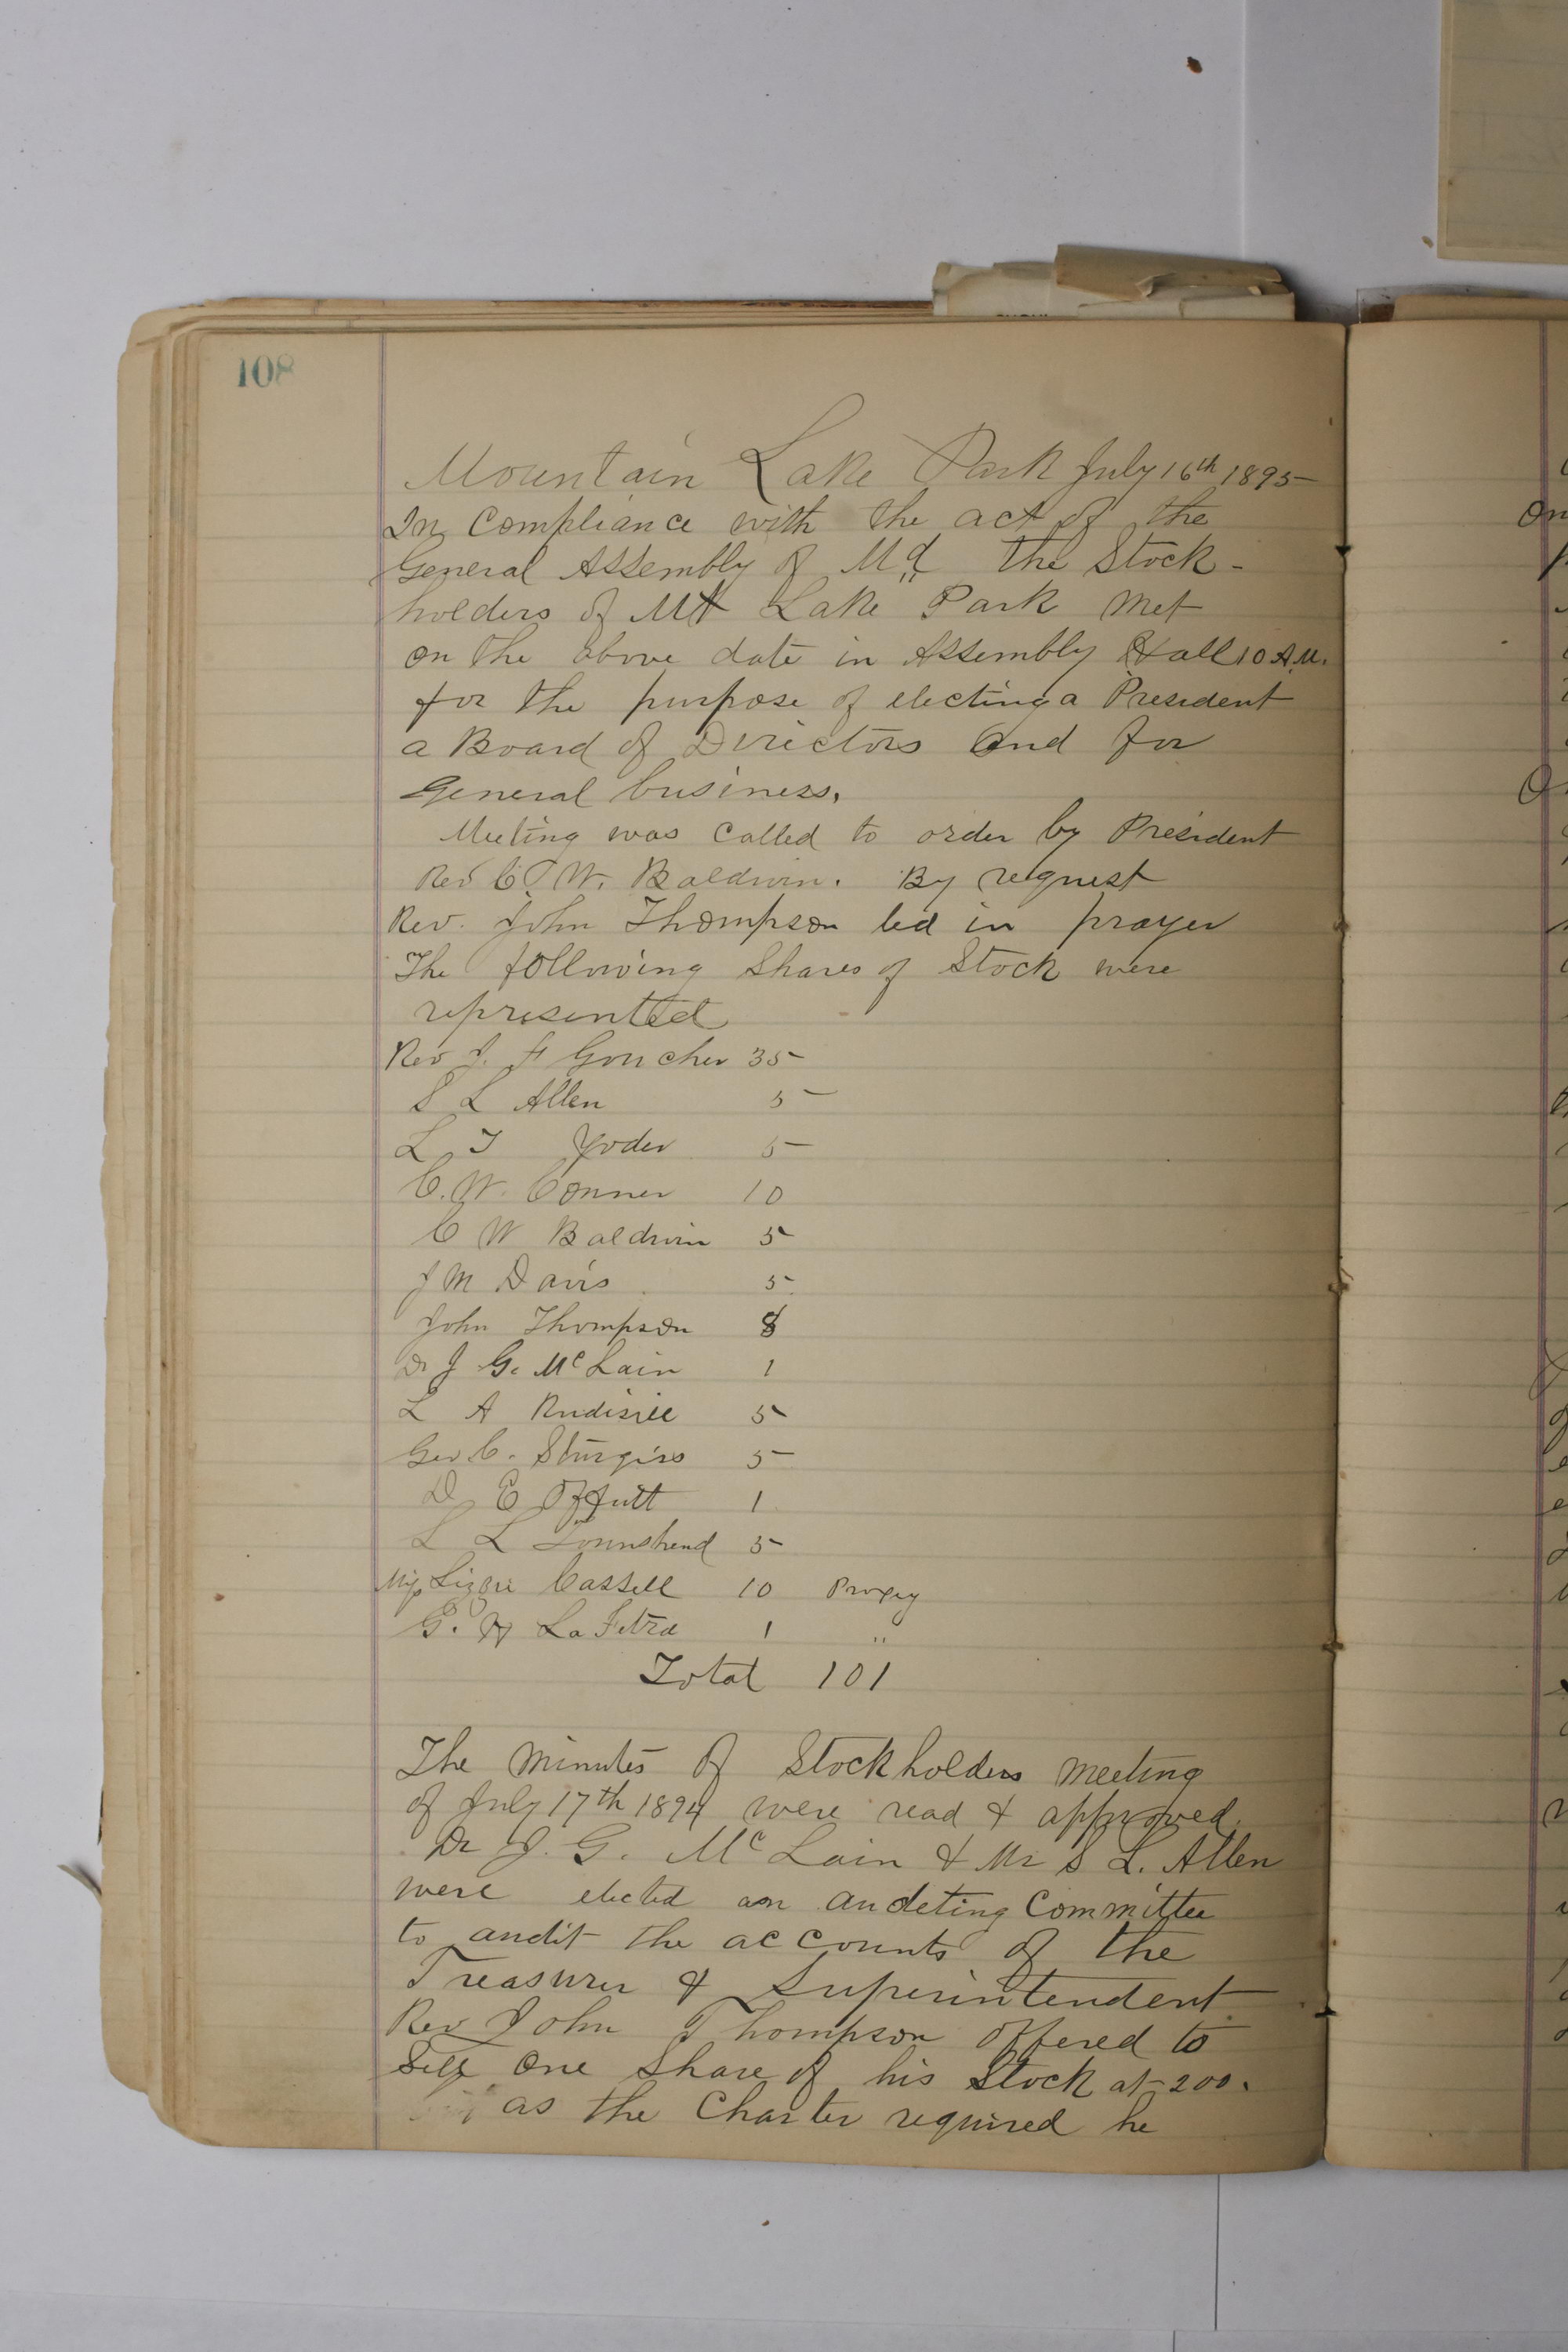 108
Mountain Lake Park July 16th 1895
In Compliance with the act of the
General Assembly of Md the Stock-
holders of Mt Lake Park met
on the above date in Assembly Hall 10 A.M.
for the purpose of electing a President
a Board of Directors and for
General business.
Meeting was called to order by President
Rev C. W. Baldwin. By request
Rev. John Thompson led in prayer
The following Shares of Stock were
represented
Rev J. F Goucher 35
S L Allen 5
L T Yoder 5
C. W. Conner 10
C W Baldwin 5
J M Davis 5
John Thompson 8
Dr J G. McLain 1
L A Rudisill 5
Geo C. Sturgiss 5
D E Offutt 1
L L Townshend 5
Miss Lizzie Cassell 10 Proxey
G. H La Fetra 1 "
Total 101
The minutes of Stockholders meeting
of July 17th 1894 were read & approved.
Dr J. G. McLain & Mr S L. Allen
were elected an audeting Committee
to audit the accounts of the
Treasurer & Superintendent
Rev John Thompson offered to
Sell One Share of his Stock at 200.
as the Charter required he
On